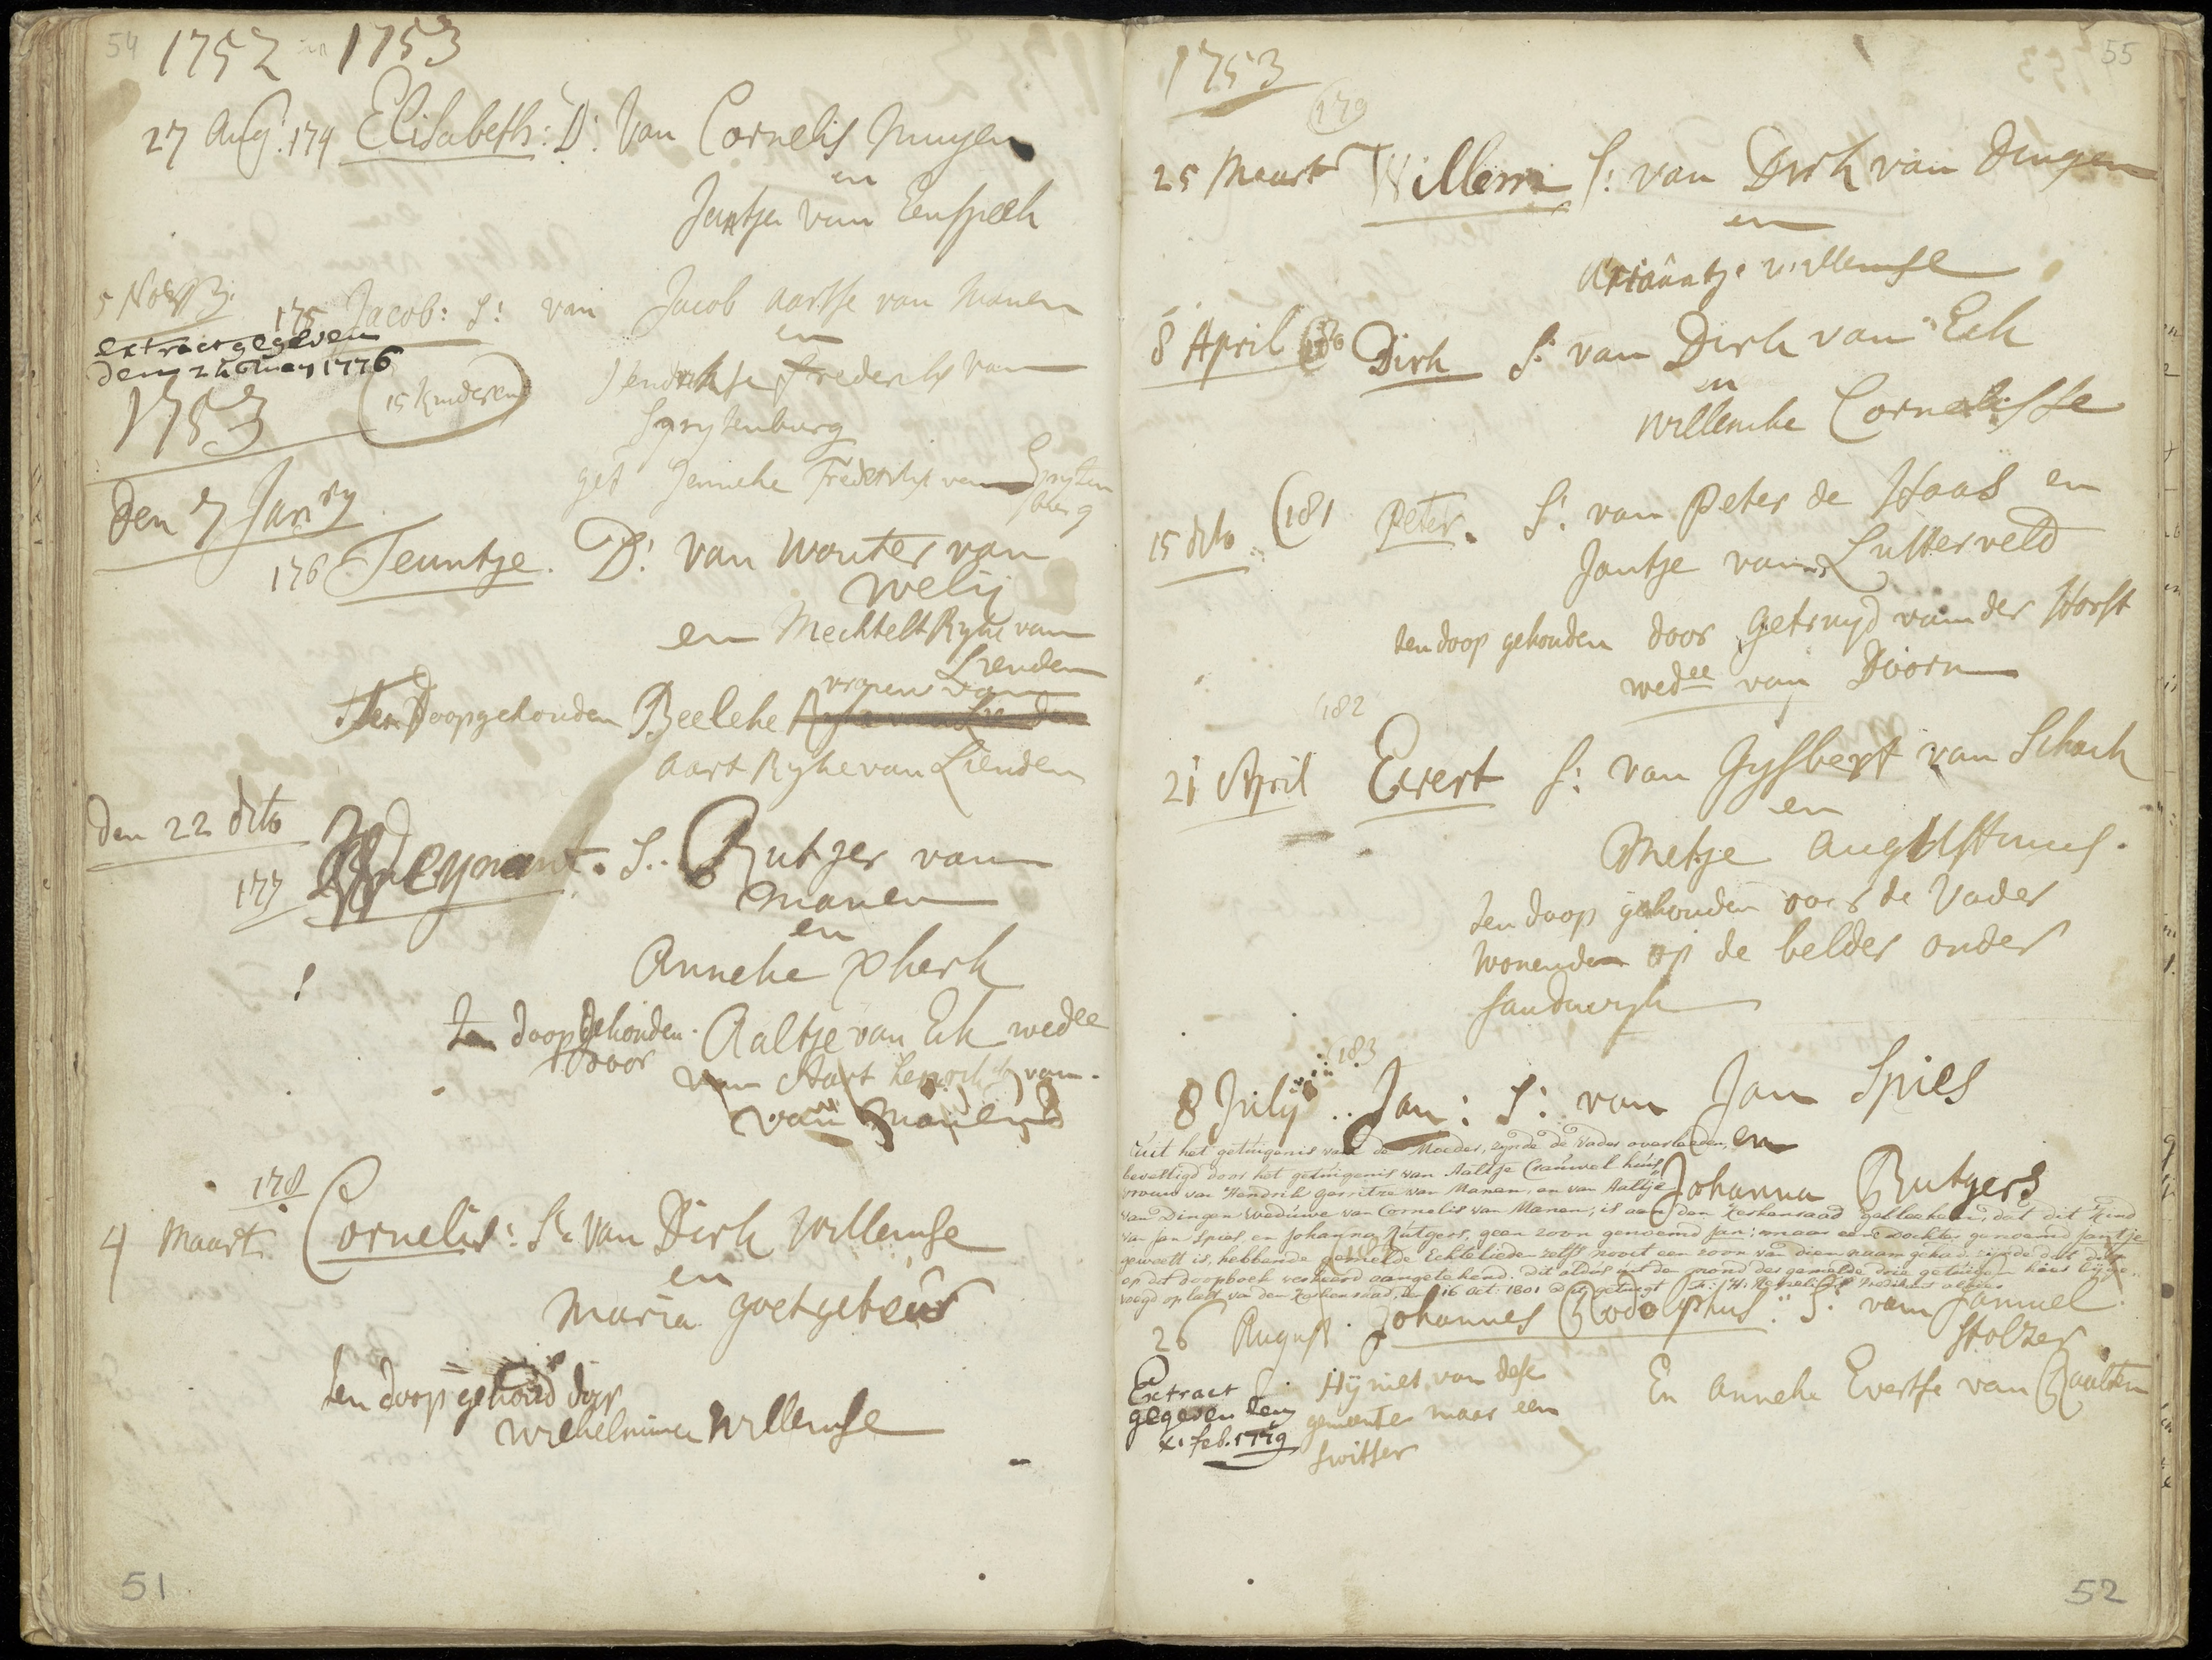 54
1752 en 1753
27 Aug. 174 Elisabeth: D: Van Cornelis Muyen
en
Jantje van Eenspeek
5 Nov
175 Jacob: S: van Jacob Aartse van Manen
en
extract gegeven
den 2 1776
(15 kinderen)
Hendrikje Frederikse van
Sprytenburg
get Jenneke Frederikx van Spryten
burg
1753
Den 7 Janry
176 Teuntje. D: Van Wouter van
Welij
en Mechtelt Ryke van
Lienden
Ten Doopgehouden Beeleke vrouw van
Aart Ryke van Lienden
den 22 dito
177 Reynant. S.. Rutger van
Manen
en
Anneke
ten doop gehouden. Aaltje van Eck wedee
door
van Aart van.
van Manen
178
4 Maart. Cornelis: S: Van Dirk Willemse
en
Maria goetgebeür
ten doop gehoud door
Wilhelmina Willemse
51
55
1753
179
25 Maart Willem S: van Dirk van Dingen
en
Ariaantje Willemse
8 April 180 Dirk S: van Dirk van Eck
en
Willemke Cornelisse
15 dito (181 Peter. S: van Peter de Haas en
Jantje van Lutterveld
ten doop gehouden door Getruyd van der Horst
wedee van Doorn
182
21 April Evert S: van Gysbert van Schaik
en
Metje Augustinus.
ten doop gehouden door de Vader
Wonende op de Gelder onder
Sandwyk
183
8 July .. Jan: S: van Jan Spies
en
Uit het getuigenis van de Moeder, zynde de Vader overleeden,
bevestigd door het getuigenis van Aaltje Crauwel huis
vrouw van Hendrik Gerritze van Manen, en van Aaltje
Johanna Rutgers
van Dingen weduwe van Cornelis van Manen; is aan den Kerkenraad gebleeken, dat dit Kind
van Jan Spies, en Johanna Rutgers, geen zoon genoemd Jan; maar eene dochter genoemd Jantje
geweest is, hebbende gemelde Echtelieden zelfs nooit een zoon van dien naam gehad. zijnde dus die
op dit doopboek verkeerd aangetekend. Dit aldus uit de mond der gemelde drie getuigen hier byge
voegd op last van den Kerkenraad, den 16 Oct: 1801
26 August. Johannes Rodolphus: S: van Samuel
Stolzer
Extract
gegeven den
21 feb. 1779
Hij niet van dese
gemeente maar een
switser
En Anneke Evertse van Raalten
52